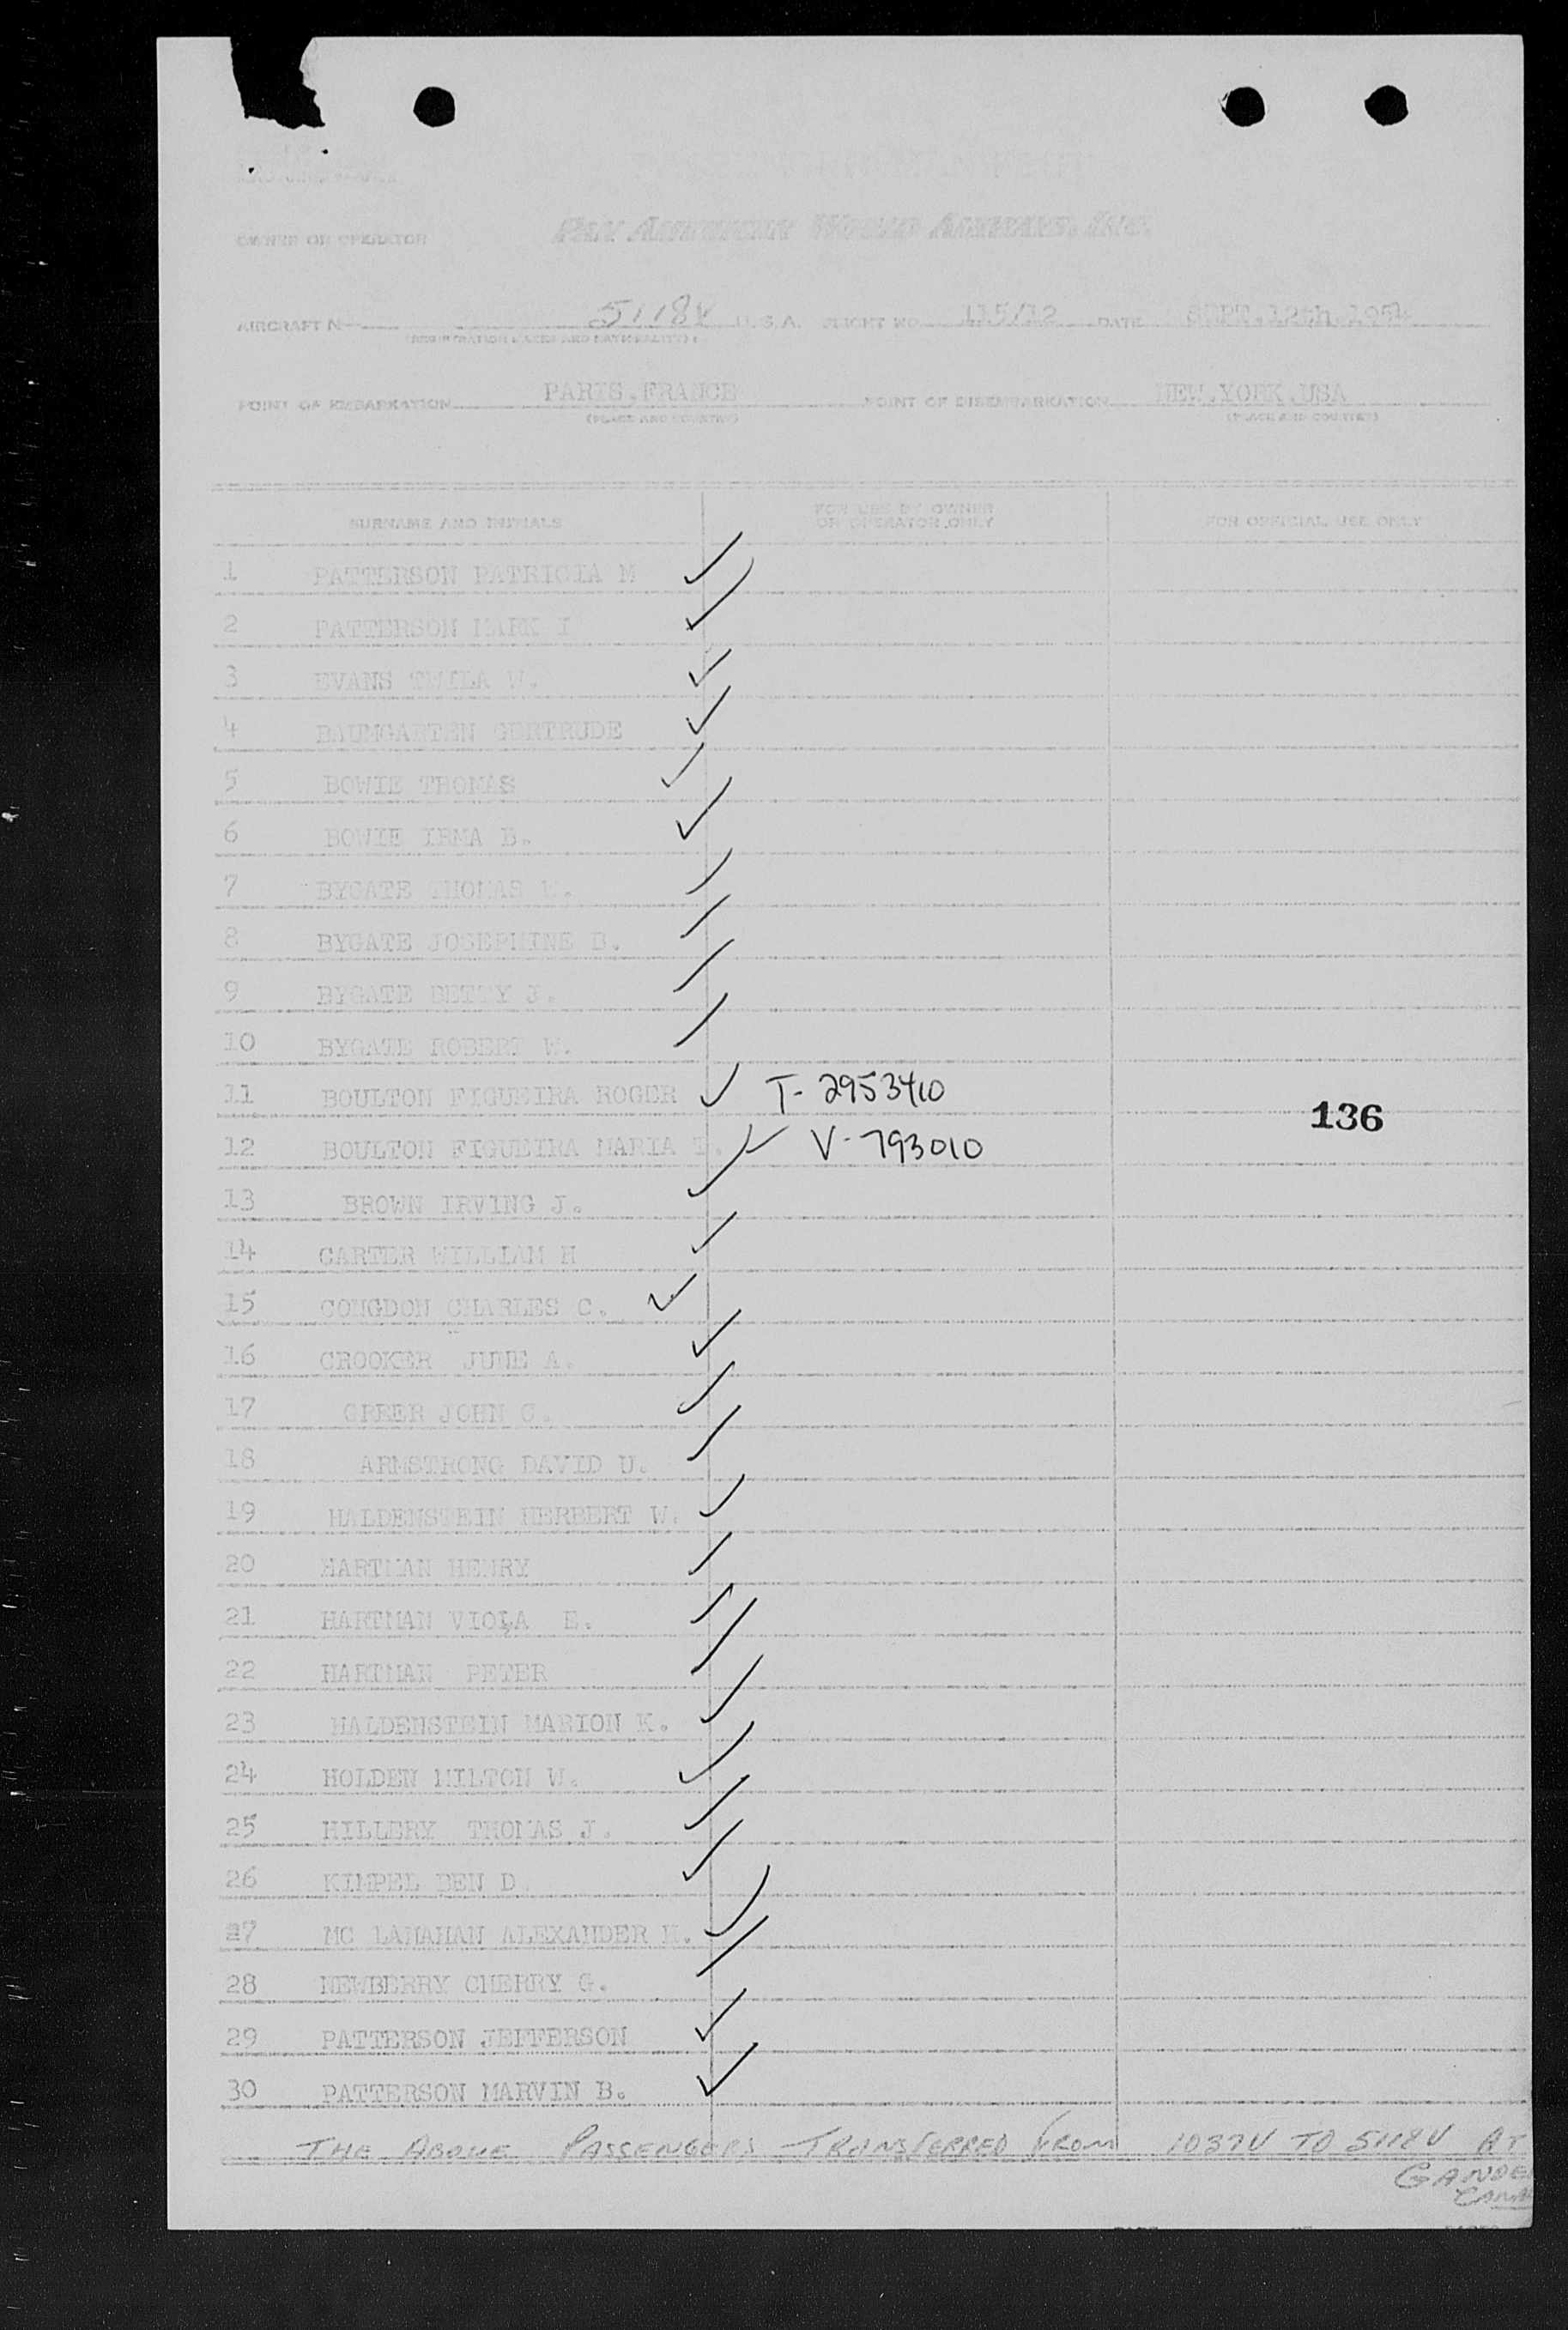 OWNER OR OPERATOR PAN AMERICAN WORLD AIRWAYS, INC.
AIRCRAFT N 5118V U.S.A. FLIGHT NO. 115/12 DATE SEPT.12th.1954
(REGISTRATION MARKS AND NATIONALITY)
POINT OF EMBARKATION PARIS.FRANCE POINT OF DISEMBARKATION NEW.YORK.USA
(PLACE AND COUNTRY) (PLACE AND COUNTRY)
SURNAME AND INITIALS FOR USE BY OWNER OR OPERATOR ONLY FOR OFFICIAL USE ONLY
1 PATTERSON PATRICIA M
2 PATTERSON MARK I
3 EVANS TWILA W.
4 BAUMGARTEN GERTRUDE
5 BOWIE THOMAS
6 BOWIE IRMA B.
7 BYGATE THOMAS W.
8 BYGATE JOSEPHINE B.
9 BYGATE BETTY J.
10 BYGATE ROBERT W.
11 BOULTON FIGUEIRA ROGER T- 2953410
136
12 BOULTON FIGUEIRA MARIA V-793010
13 BROWN IRVING J.
14 CARTER WILLIAM H
15 CONGDON CHARLES C.
16 CROOKER JUNE A.
17 GREER JOHN C.
18 ARMSTRONG DAVID U.
19 HALDENSTEIN HERBERT W.
20 HARTMAN HENRY
21 HARTMAN VIOLA E.
22 HARTMAN PETER
23 HALDENSTEIN MARION K.
24 HOLDEN MILTON W.
25 HILLERY THOMAS J.
26 KIMPEL BEN D
27 MC LANAHAN ALEXANDER H.
28 NEWBERRY CHERRY G.
29 PATTERSON JEFFERSON
30 PATTERSON MARVIN B.
THE ABOVE PASSENGERS TRANSFERRED FROM 1037V TO 5118V AT
GANDE
CANA